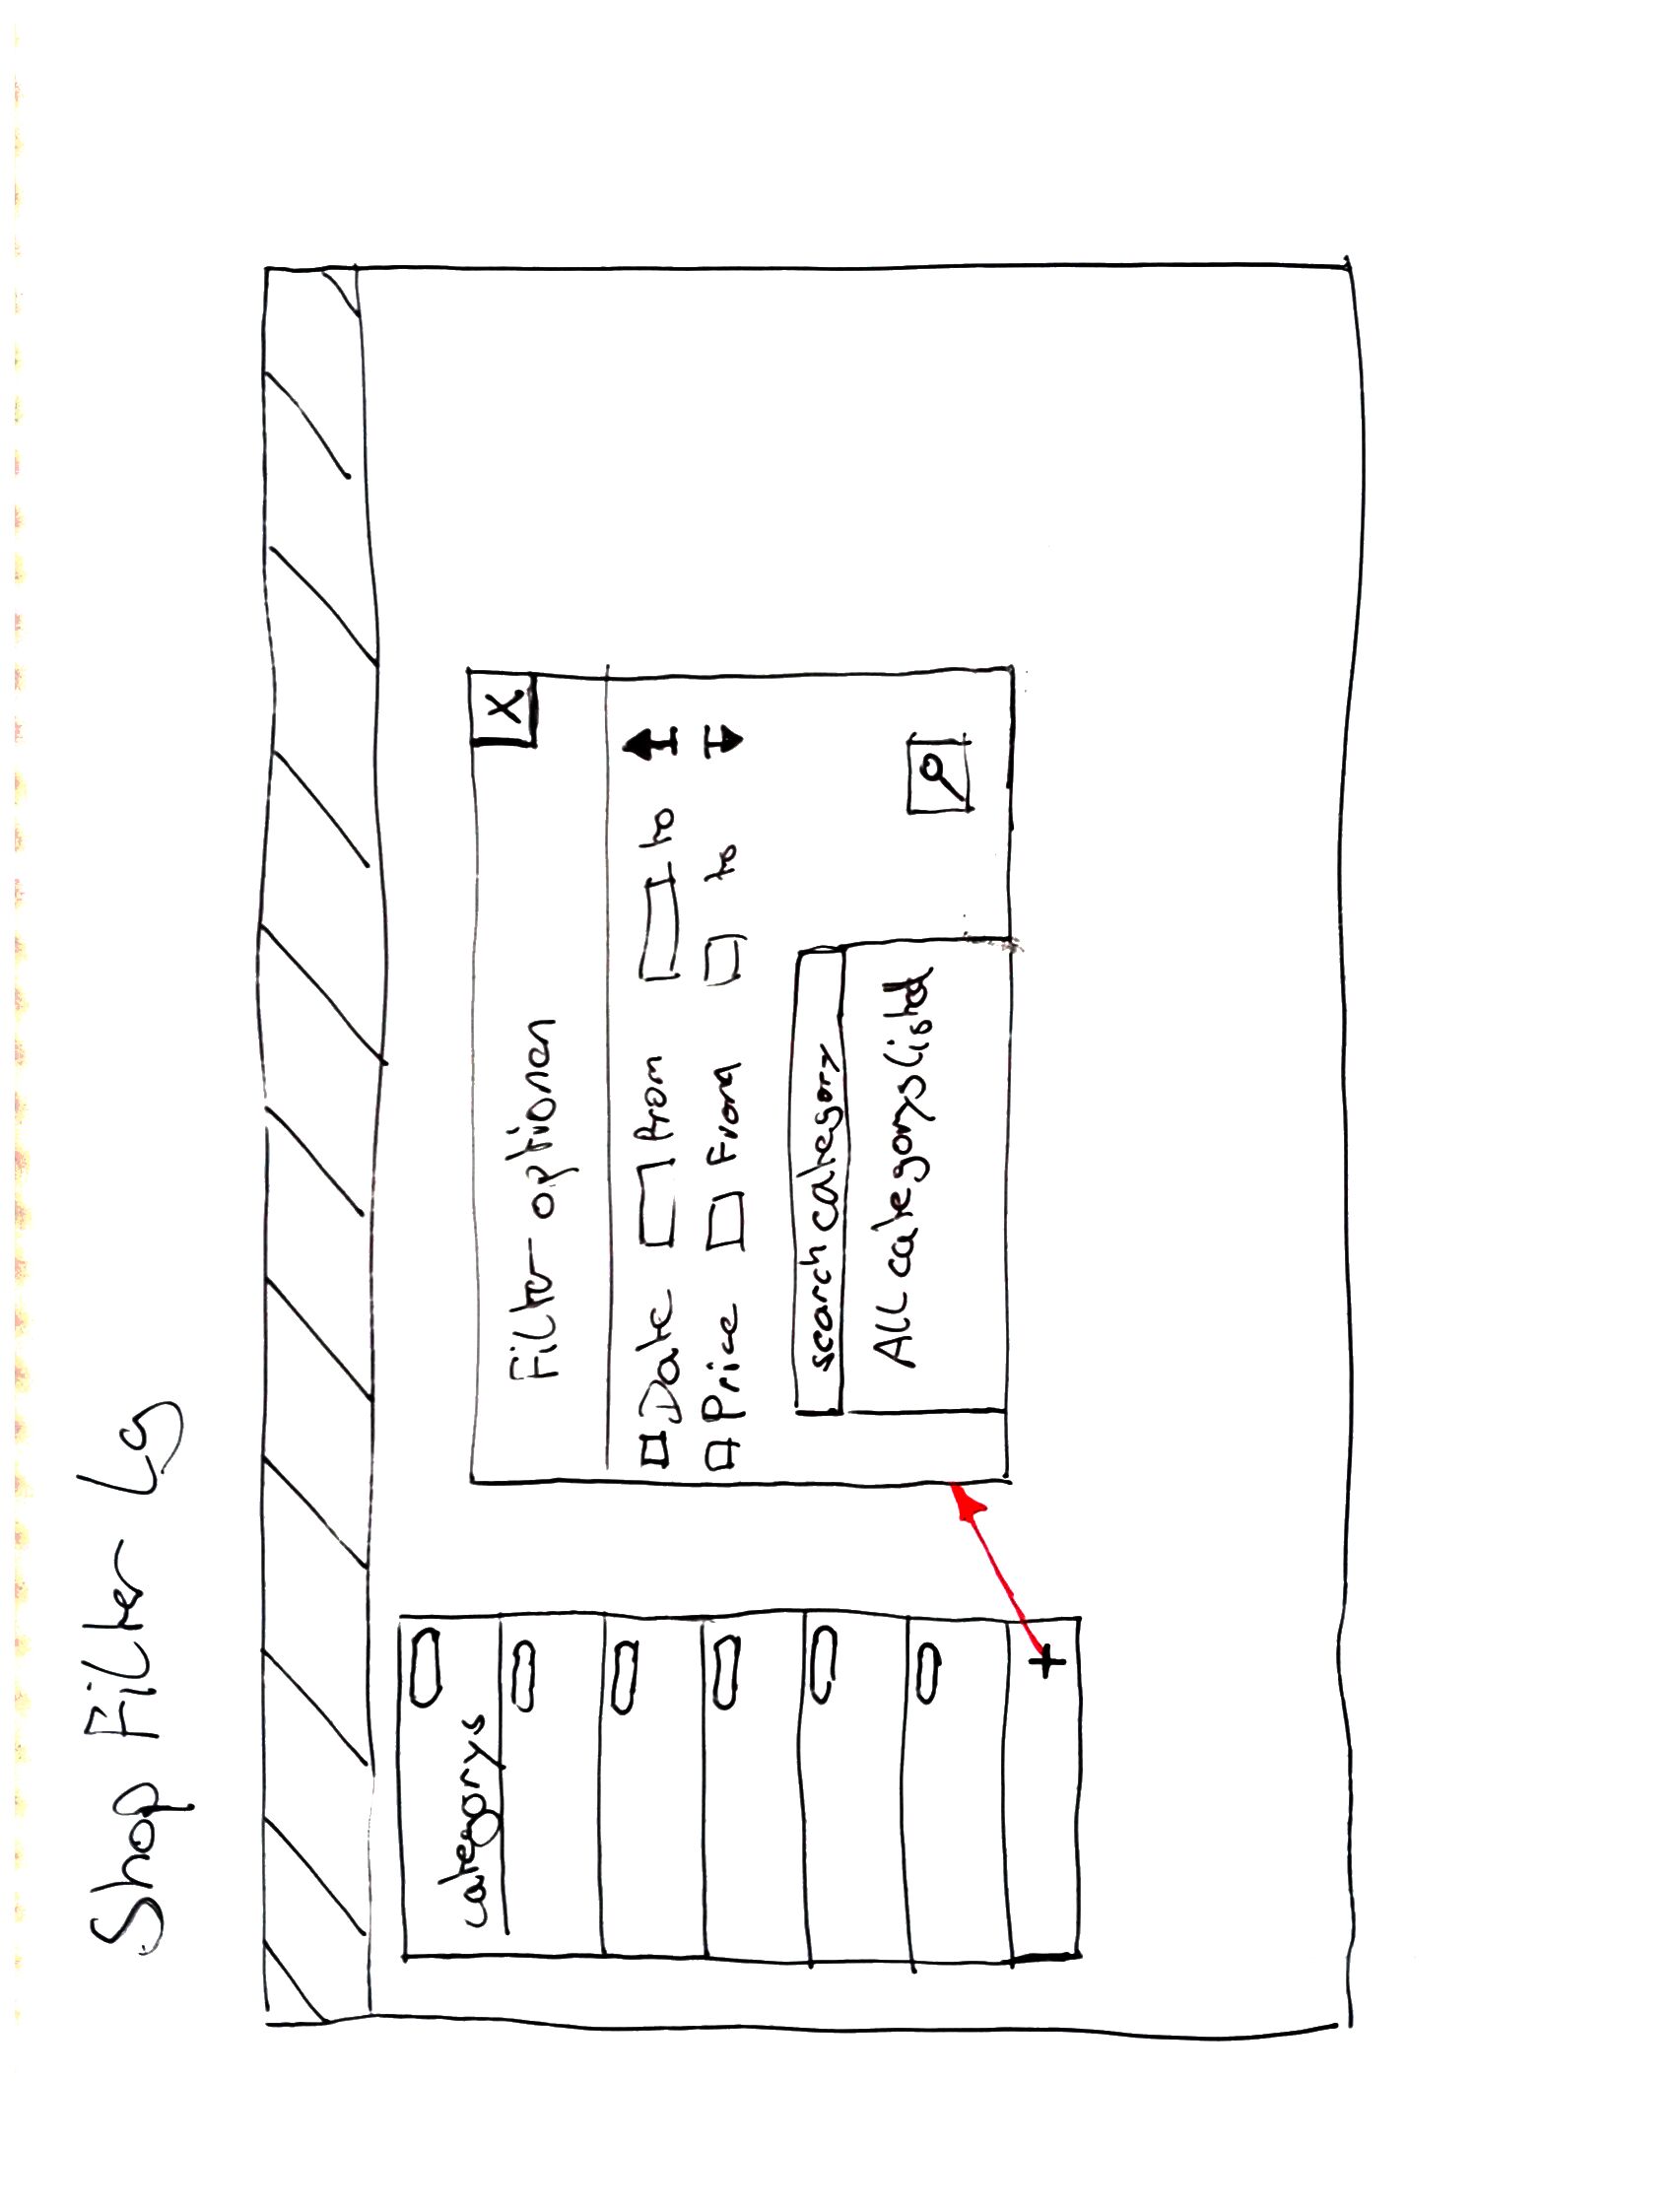 Shop Filter Lg
categorys
Filter optionen
X
Date from to
Price From to
search category
All categorys listed
+